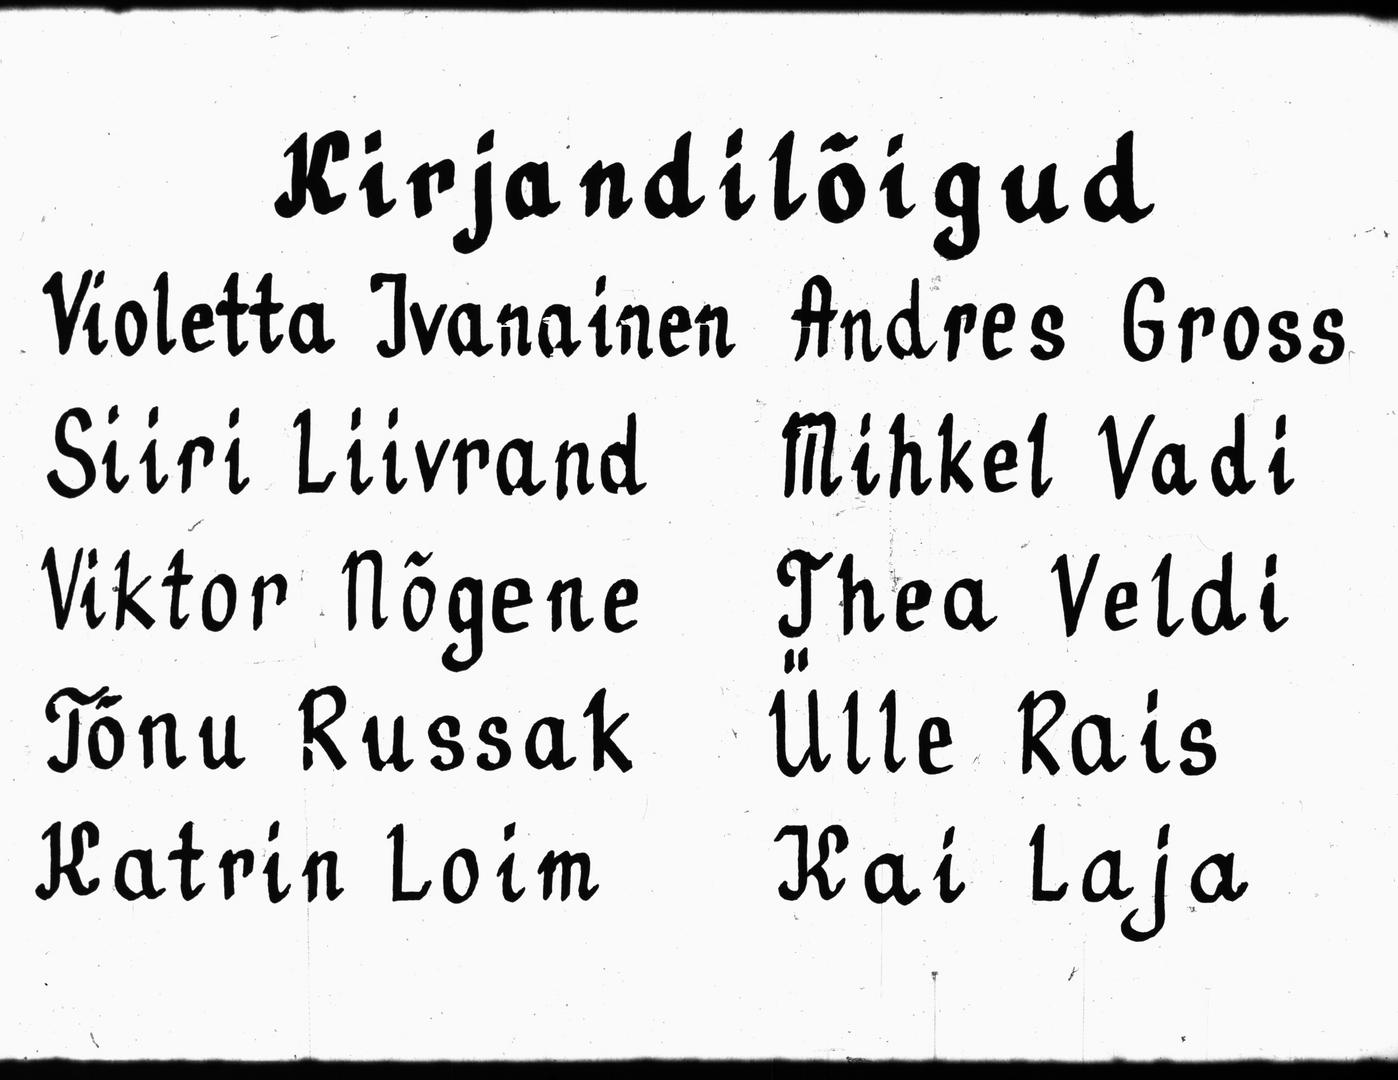 Kirjandilõigud
Violetta Ivanainen Andres Gross
Siiri Liivrand Mihkel Vadi
Viktor Nõgene Thea Veldi
Tõnu Russak Ülle Rais
Katrin Loim Kai Laja